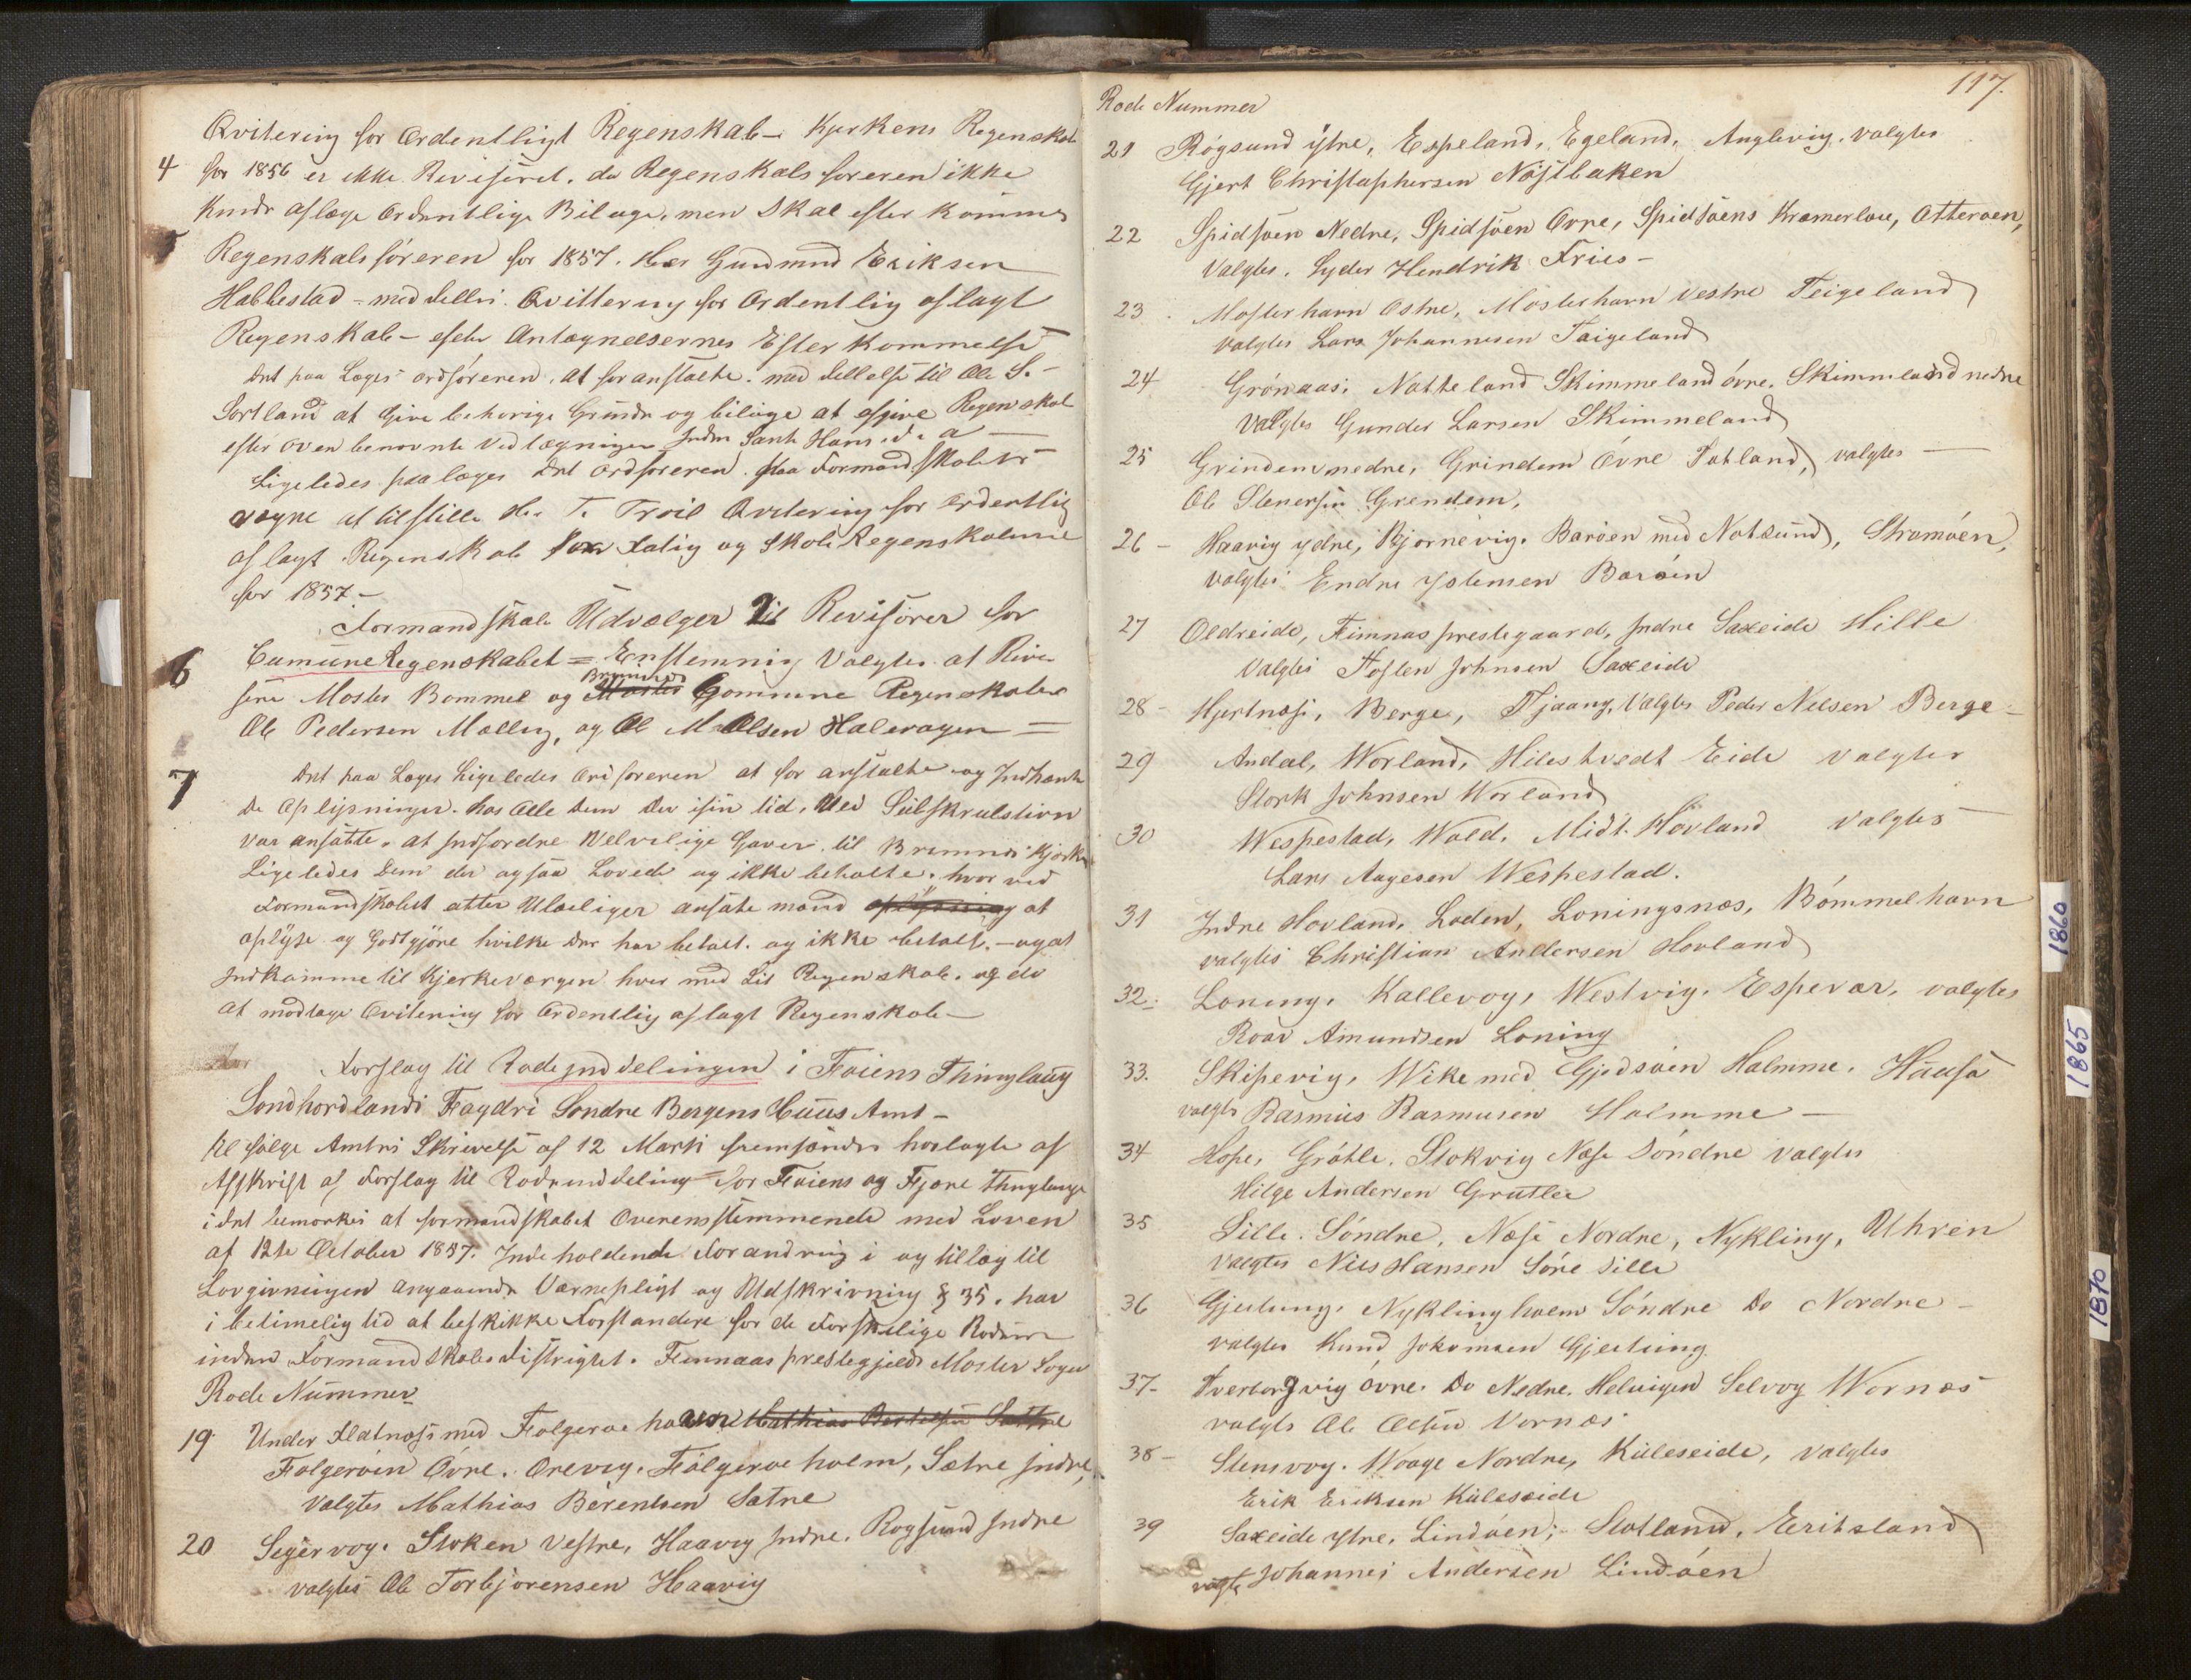 Qvitering for Ordentligt Regenskab – Kjerkens Regenskab
4 for 1856 er ikke Reviseret. da Regenskabsføreren ikke
Kunde aflæge Ordentlige Bilage, men Skal efter Kommes
5 Regenskabsføreren for 1857. Her Gudmund Eriksen
Habbestad – meddelles. Qvittering for Ordentlig aflagt
Regenskab – efter Antægnelsernes Efter kommelse
Det paa Læges Ordføreren, at foranstalte. meddellelse til Ole S. –
Sortland at Give behørige Grunde og bilage at afgive Regenskab
efter oven benevnte Vedtægninger Inden Sankt Hans. d. a –
Ligeledes paalæges det Ordføreren. paa Formandskabets
vegne at tilstille Hr. T. Troil Qvitering for ordentlig
aflagt Regenskab for Fatig og Skole Regenskaberne
for 1857. –
Formandskab Udvælger Til Revisører for
6 Comune Regenskabet = Enstemmig Valgtes at Revi-
Bremnes
sere Moster Bømmel og Moster Commune Regenskaber
Ole Pedersen Mælley, og Ole M Olsen Halevagen =
7 Det paa Læges Ligeledes Ordføreren at for anstalte og Indhente
De Oplysninger. hos Alle dem Der isin tid. Ved Subskrubtion
var ansatte. at Indfordre Velvelige Gaver. til Bremnes Kjerke
Ligeledes Dem der ogsaa Lovede og ikke betalte. hvor ved
Formandskabet atter Udvelger ansate mænd oplysning at
oplyse og Godtgjøre hvilke der har betalt. og ikke betalt. – og at
Indkomme til Kjerkeværgen hver med Sit Regenskab. og da
at modtage Qvitering for Ordentlig aflagt Regenskab –
Forslag til Rode Inddelingen i Føiens Thinglaug
Søndhordlands Fogdri Søndre Bergens Huus Amt –
Ifølge Amtes Skrivelse af 12 Marts fremsendes hoslagte af
Afskrift af Forslag til Rodeinddeling = for Føiens og Fjære thinglauge
idet bemærkes at formandskabet Overensstemmende med Loven
af 12te October 1857. Indeholdende Forandring i og tillæg til
Lovgivningen angaaende Værnepligt og Udskrivning § 35. har
i betimelig tid at beskikke Forstandere for de Forskjelige Roder
inden Formandskabs distrigtet. Finnaas prestegjeld Moster Sogn
Rode Nummer
19 Under Flatnæs med Folgeroe havn Mathias Berentsen Sætre
Folgerøen Øvre. Orevig. Følgeroe holm, Sætre Indre,
Valgtes Mathias Bérentsen Sætre
20 Segervog. Stoken Vestre, Haavig Indre. Rogsund Indre
valgtes Ole Torbjørensen Haavig
117.
Rode Nummer
21 Røgsund ytre, Espeland, Egeland, Anglevig, valgtes
Gjert Christophersen Nøstbakken
22 Spidsøen Nedre, Spidsøen Øvre, Spidsøens Kramerleie, Otterøen,
Valgtes. Lyder Hendrik Fries –
23 Mosterhavn Østre, Mosterhavn Vestre Teigeland
valgtes Lars Johannesen Taigeland
24 Grønaas, Natteland Skimmeland øvre. Skimmeland nedre
Valgtes Gunder Larsen Skimmeland
25 Grindem nedre, Grindem Øvre Totland, valgtes –
Ole Stenersen Grendem,
26 – Haavig ydre, Bjornevig. Barøen med Notsund, Stromøen,
valgtes Endre Ystensen Barøen
27 Oldreide, Finnas prestegaard, Indre Saxeide Hille
Valgtes Tosten Johnsen Saxeide
28 – Hjertnæs, Berge, Tjaang, Valgtes Peder Nelsen Berge –
29 Andal, Worland, Hilestvedt Eide valgtes
Stork Johnsen Worland
30 Wespestad, Wold, Midt. Hovland Valgtes
Lars Aagesen Wespestad.
31 Indre Hovland, Loden, Loningsnæs, Bømmelhavn
valgtes Christian Andersen Hovland
32. Loning, Kallevog, Westvig, Espevær, valgtes
Roar Amundsen Loning
33. Skipevig, Wike med Gjedsøen Halmme, Haasa
valgts Rasmus Rasmusen Holmme –
34 Hope, Grøtle, Stokvig Næse Søndre valgtes
Hilge Andersen Grutlee
35 Sille. Søndre, Næse Nordre, Nykling, Uhren
Valgtes Niels Hansen Søre Sille
36 Gjeitung, Nyklingholm Søndre Do Nordre –
valgtes Knud Johannsen Gjeitung
37 – Tverborgvig øvre. Do Nedre. Helvigen Selvog Wornæs
valgts Ole Olsen Vornæs
38 – Stensvog. Woage Nordre, Kuleseide, Valgtes
Erik Eriksen Kuleseide
39 Saxeide Ytre, Lindøen; – Slotland, Eeritsland
valgte Johannes Andersen Lindøen
1860
1865
1870